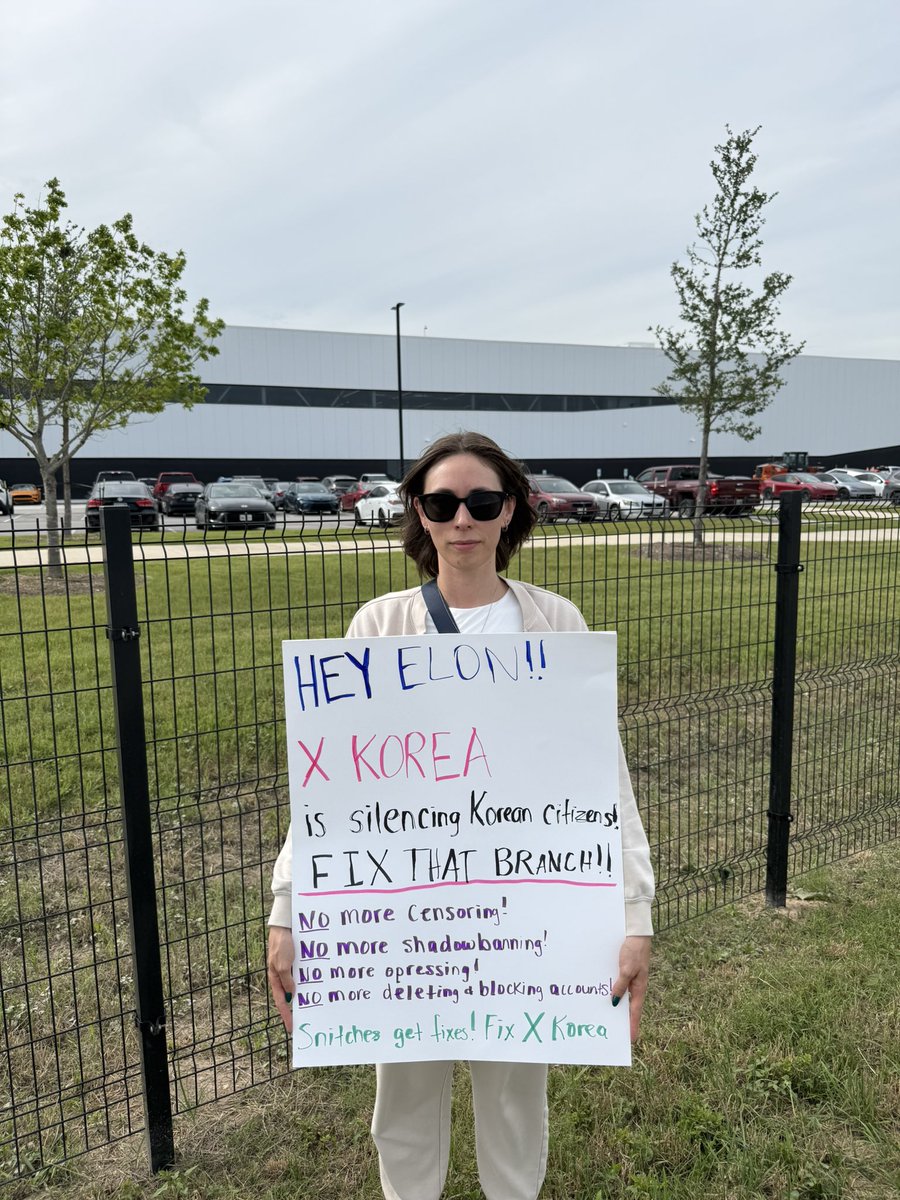 HEY ELON!!
X KOREA
is silencing Korean citizens!
FIX THAT BRANCH!!
NO more censoring!
NO more shadowbanning!
NO more opressing!
NO more deleting & blocking accounts!
Snitches get fixes! Fix X Korea